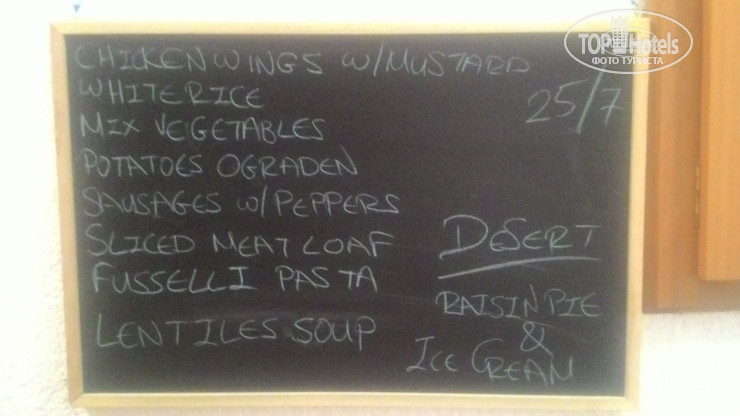 TOP Hotels
ФОТО ТУРИСТА
CHICKEN WINGS W/MUSTARD
25/7
WHITE RICE
MIX VEGETABLES
POTATOES OGRADEN
SAUSAGES W/PEPPERS
SLICED MEAT LOAF
FUSSELLI PASTA
LENTILES SOUP
DESERT
RAISIN PIE
&
ICE CREAM